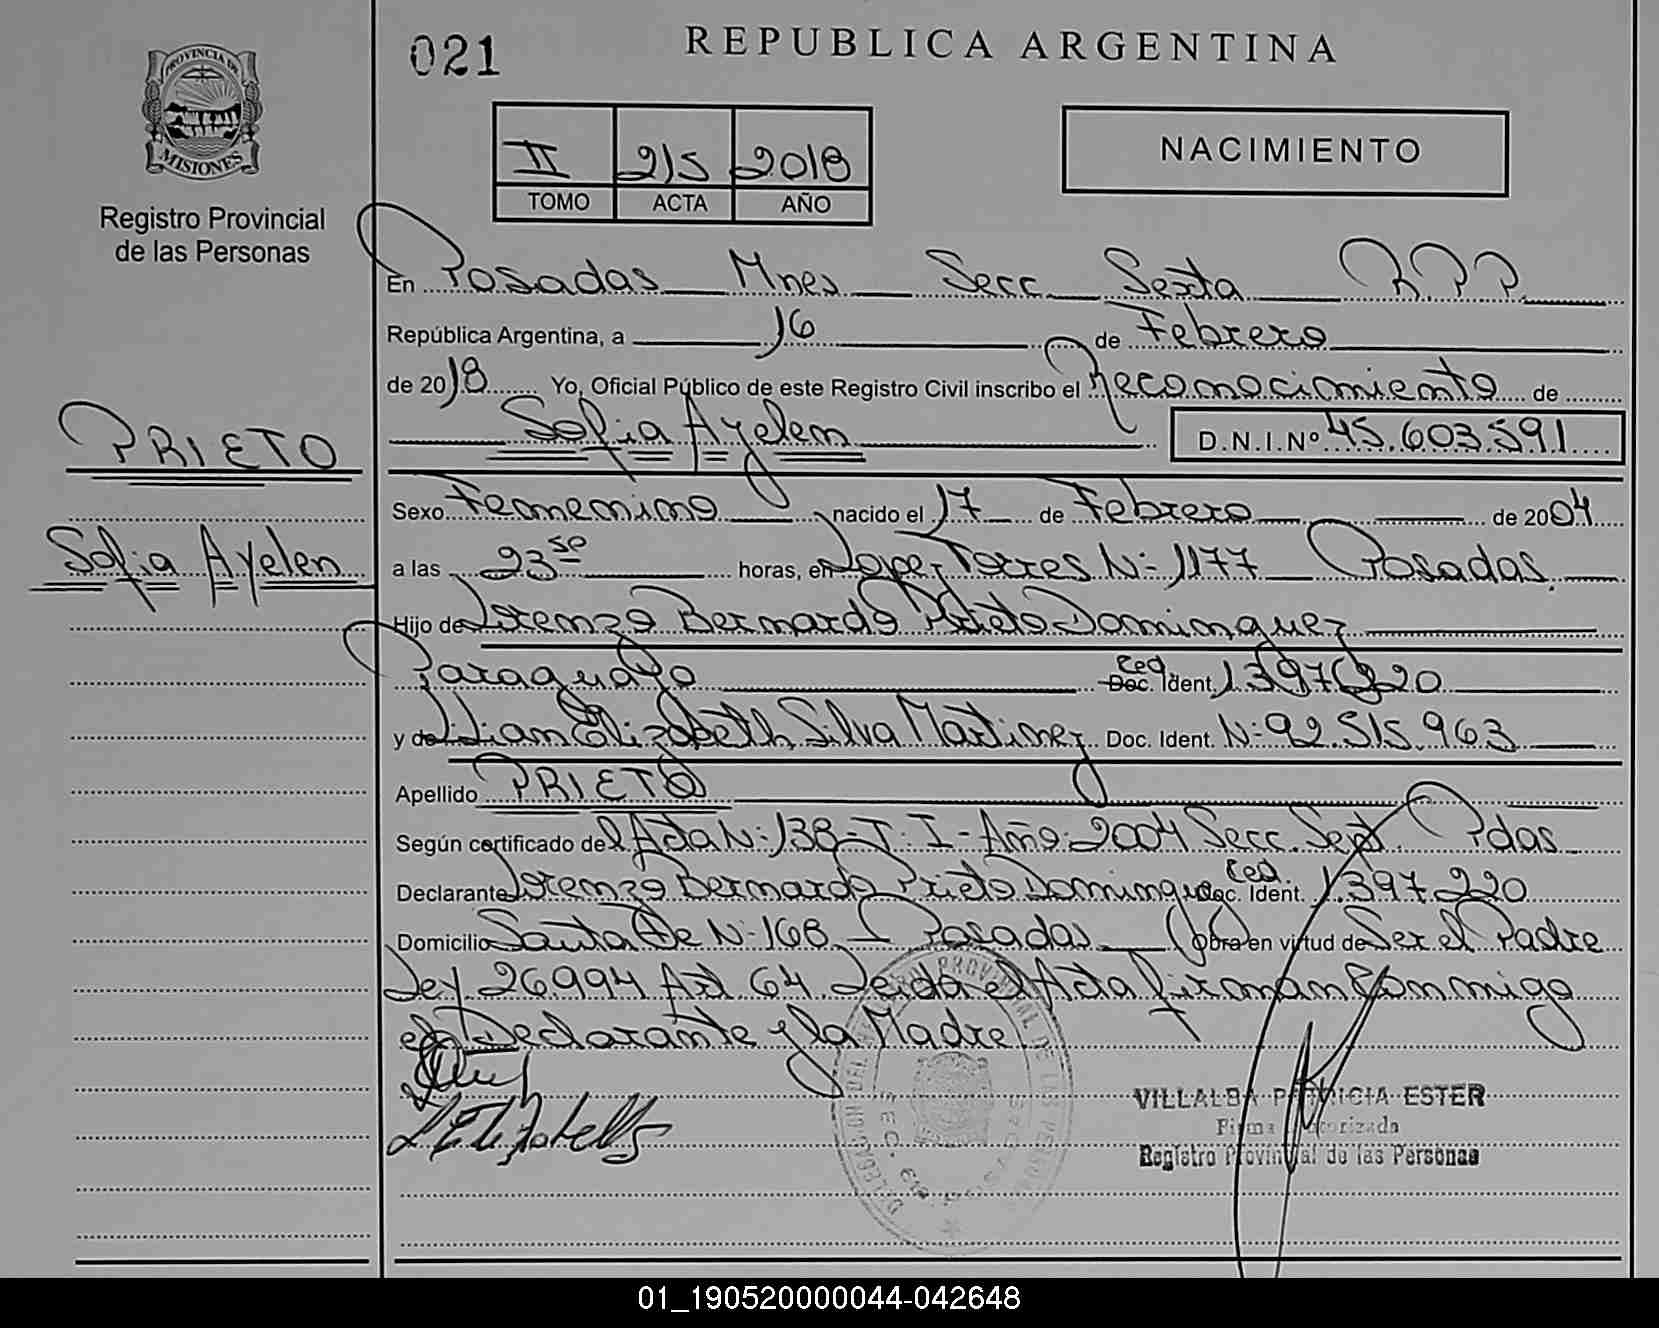 021
REPUBLICA ARGENTINA
PROVINCIA DE
MISIONES
Registro Provincial
de las Personas
II 215 2018
TOMO ACTA AÑO
NACIMIENTO
En Posadas Mnes Secc Sexta R.P.P.
República Argentina, a 16 de Febrero
de 2018 Yo, Oficial Público de este Registro Civil inscribo el Reconocimiento de
Sofia Ayelen D.N.I.Nº 45.603.591
PRIETO
Sofia Ayelen
Sexo Femenino nacido el 17 de Febrero de 2004
a las 23 50 horas, en Lopez Torres N: 1177 Posadas
Hijo de Lorenzo Bernardo Prieto Dominguez
Paraguayo Ced Doc. Ident.
y de Lilian Elizabeth Silva Martinez Doc. Ident. N: 92.515.963
Apellido PRIETO
Según certificado del Acta N: 138-T: I-Año: 2004 Secc. Sext. Pdas
Declarante Lorenzo Bernardo Prieto Dominguez Ced. Doc. Ident. 1.397.220
Domicilio Santa Fe N: 168 Posadas Obra en virtud de Ser el Padre
Ley 26994 Art. 64. Leida el Acta firman Conmigo
el Declarante y la Madre.
VILLALBA PATRICIA ESTER
Firma Autorizada
Registro Provincial de las Personas
01_190520000044-042648